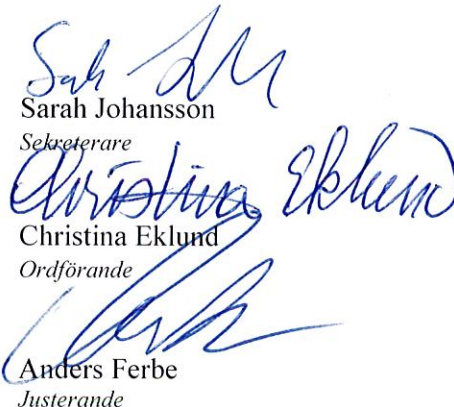 Sarah Johansson
Sekreterare
Christina Eklund
Christina Eklund
Ordförande
Anders Ferbe
Justerande